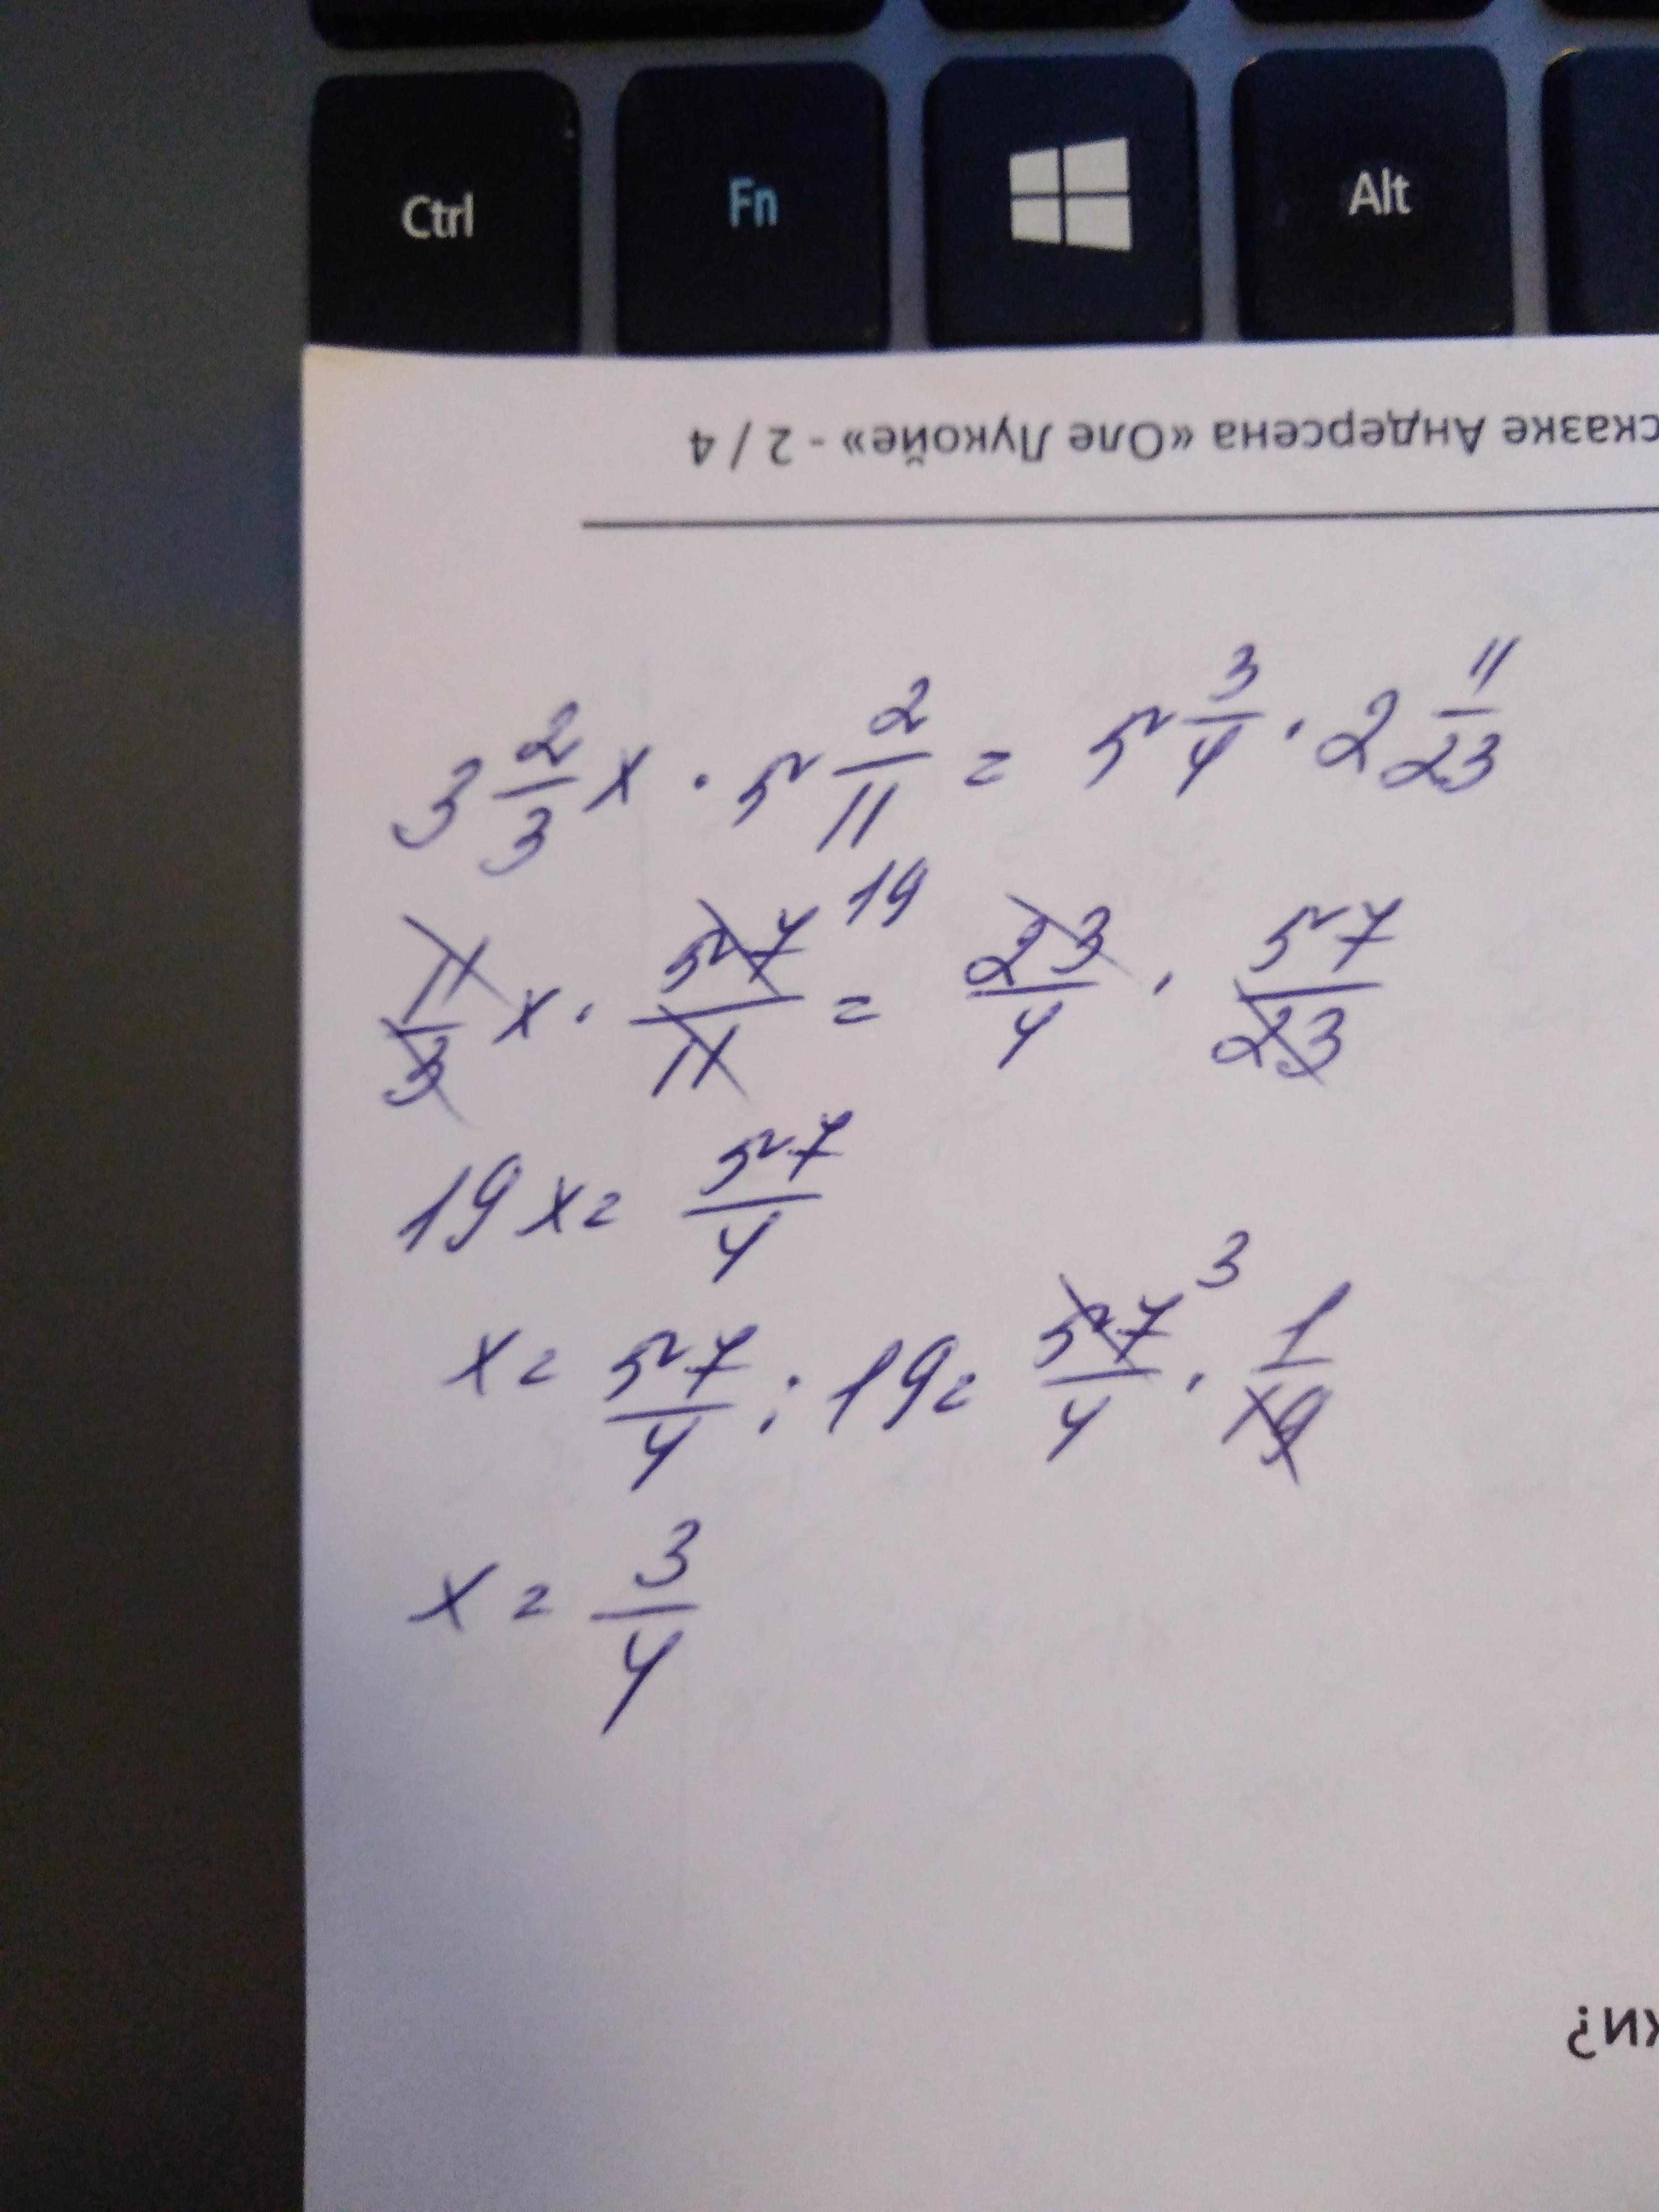 Ctrl Fn Alt
сказке Андерсена «Оле Лукойе» - 2 / 4
3 2/3 x · 5 2/11 = 5 3/4 · 2 11/23
11/3 x · 57/11 19 = 23/4 · 57/23
19x = 57/4
x = 57/4 : 19 = 57/4 3 · 1/19
x = 3/4